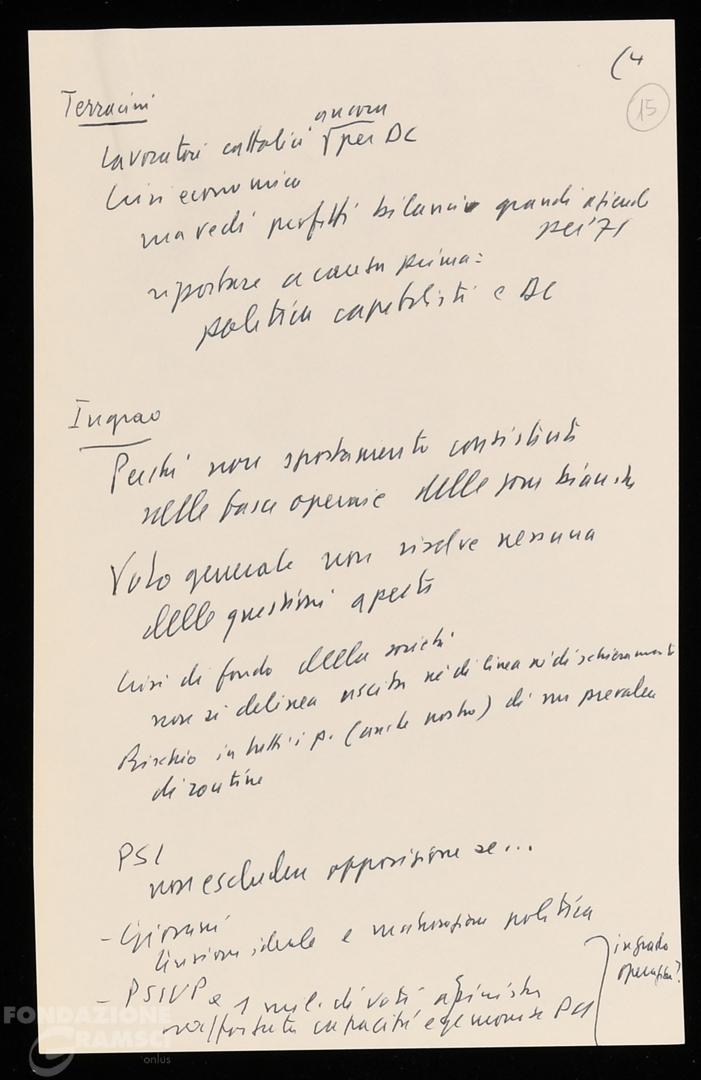 (4
15
Terracini
Lavoratori cattolici ancora per DC
Crisi economica
ma vedi perfetti bilancio grandi aziende
per '71
riportare a causa prima:
politica capitalisti e DC
Ingrao
Perché non spostamento consistenti
nelle base operaie delle zone bianche
Voto generale non risolve nessuna
delle questioni aperte
Crisi di fondo della società
non si delinea uscita né di linea né di schieramenti
Rischio in tutti i p. (anche nostro) di un prevalere
di routine
PSI
non escludere opposizione se...
- Giovani
ideale e maturazione politica
- PSIUP e 1 mil. di voti a sinistra
capacità egemonia PCI
in grado
operazione?
FONDAZIONE
GRAMSCI
onlus